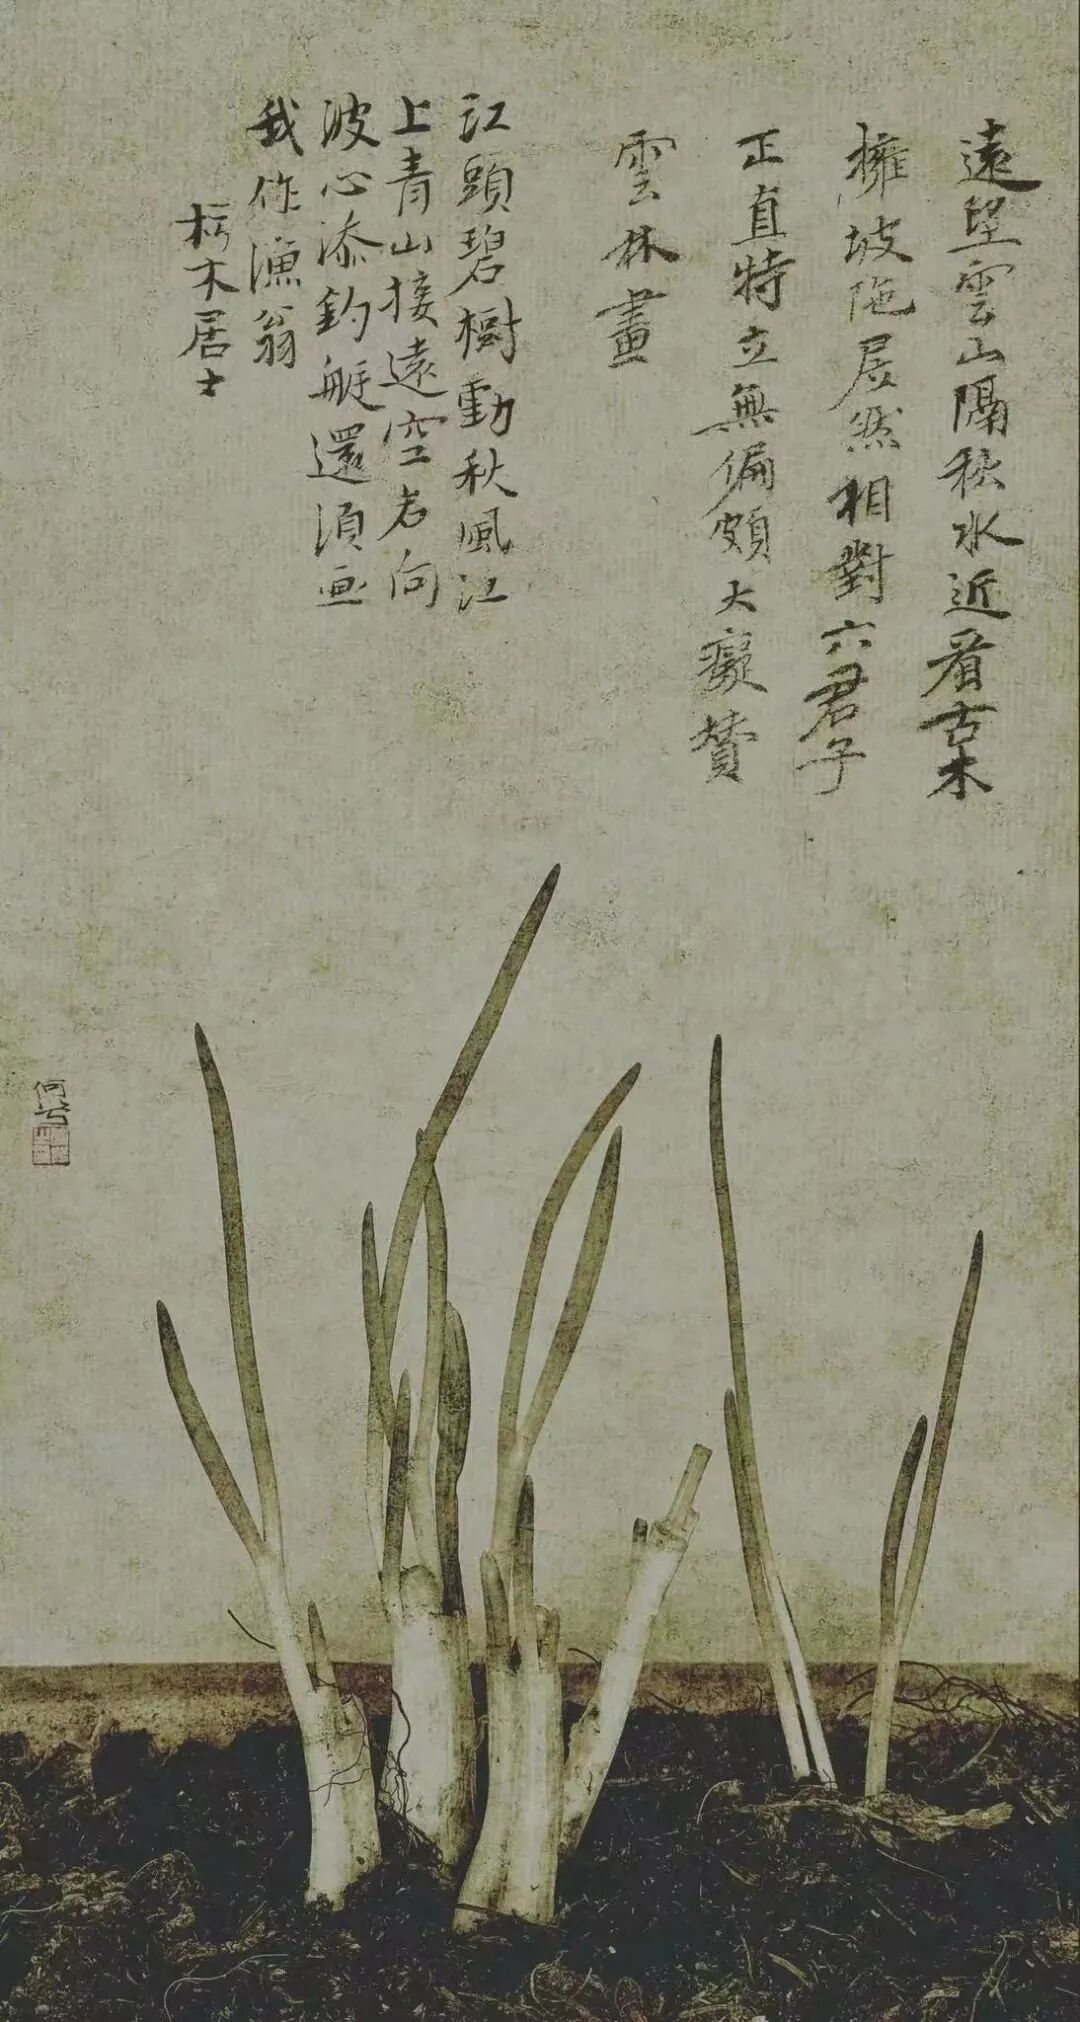 遠望雲山隔秋水近看古木
擁坡陁居然相對六君子
正直特立無偏頗大癡贊
雲林畫
江頭碧樹動秋風江
上青山接遠空若向
波心添釣艇還須畫
我作漁翁
朽木居士
何兮